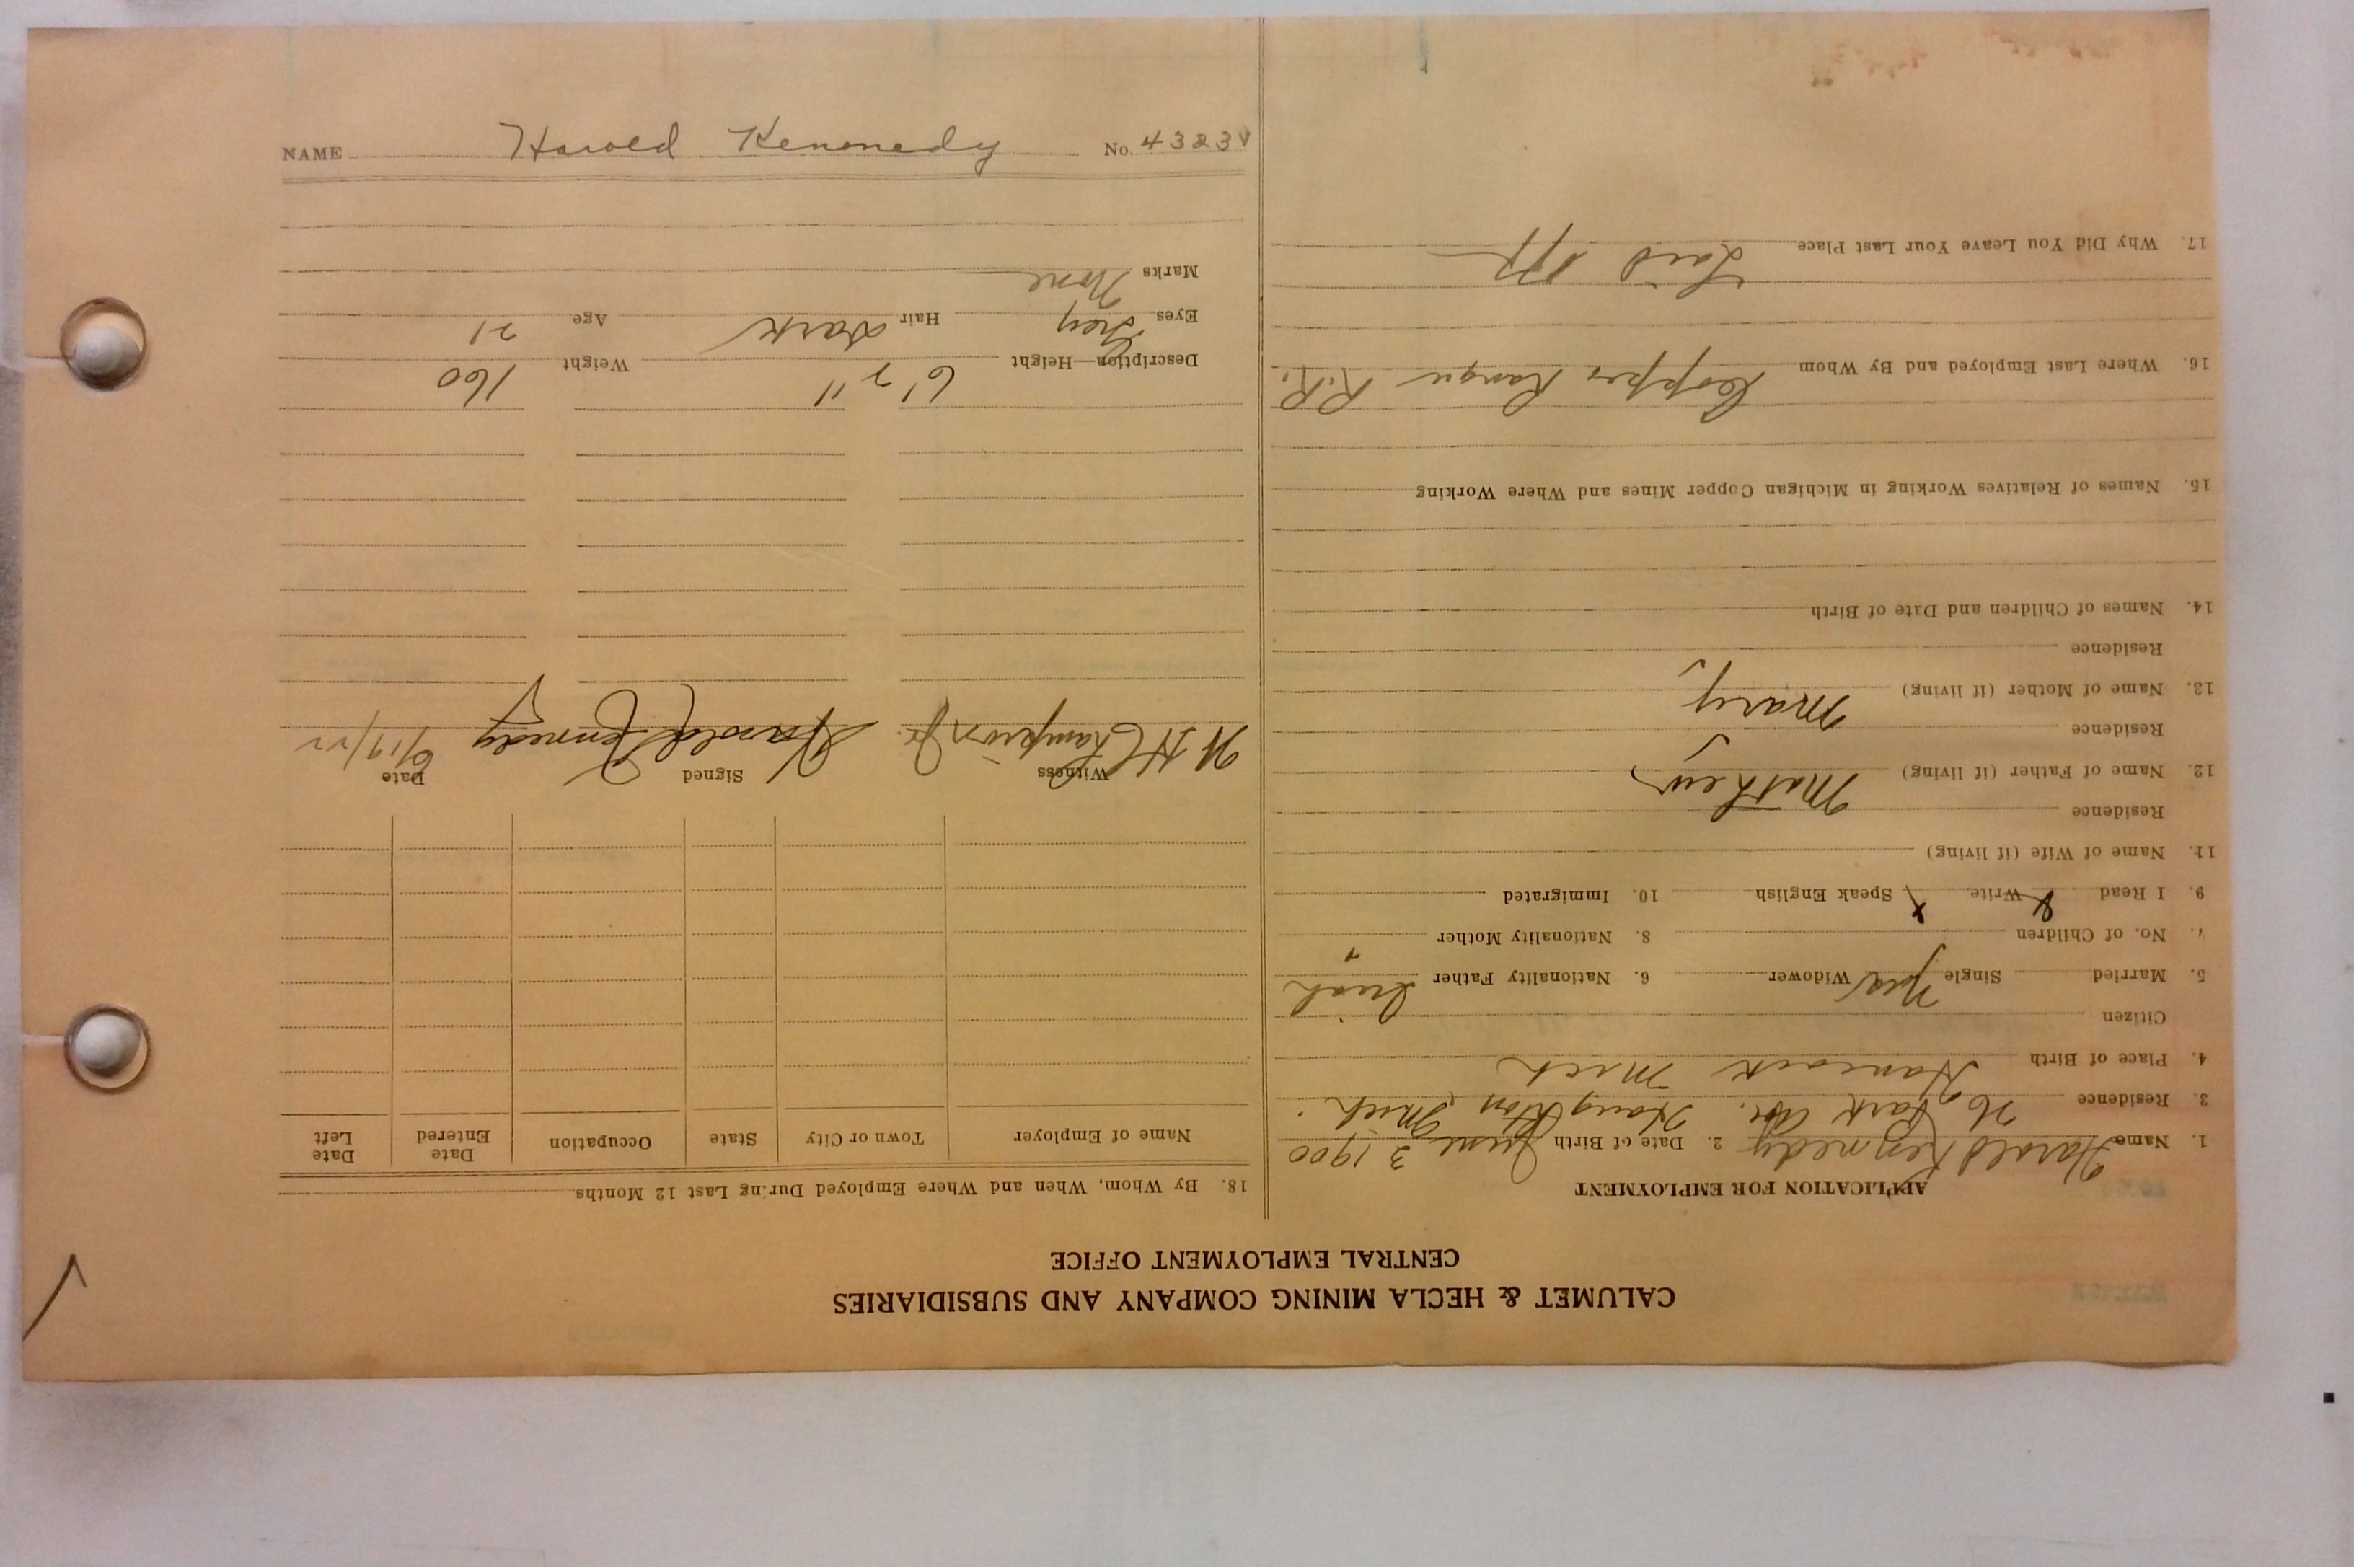 CALUMET & HECLA MINING COMPANY AND SUBSIDIARIES
CENTRAL EMPLOYMENT OFFICE
APPLICATION FOR EMPLOYMENT
1. Name Harold Kennedy 2. Date of Birth June 3 1900
3. Residence Park Ave. Houghton, Mich.
4. Place of Birth Hancock Mich
Citizen
5. Married Single Yes Widower 6. Nationality Father Irish
7. No. of Children 8. Nationality Mother "
9. I Read x Write x Speak English 10. Immigrated
11. Name of Wife (if living)
Residence
12. Name of Father (if living) Mathew
Residence
13. Name of Mother (if living) Mary
Residence
14. Names of Children and Date of Birth
15. Names of Relatives Working in Michigan Copper Mines and Where Working
16. Where Last Employed and By Whom Copper Range R.R.
17. Why Did You Leave Your Last Place Laid Off
18. By Whom, When and Where Employed During Last 12 Months
Name of Employer Town or City State Occupation Date Entered Date Left
Witness Signed Date
W H Champion Jr. Harold Kennedy 6/19/22
Description—Height 6' 2" Weight 160
Eyes Grey Hair Dark Age 21
Marks None
NAME Harold Kennedy No. 4323